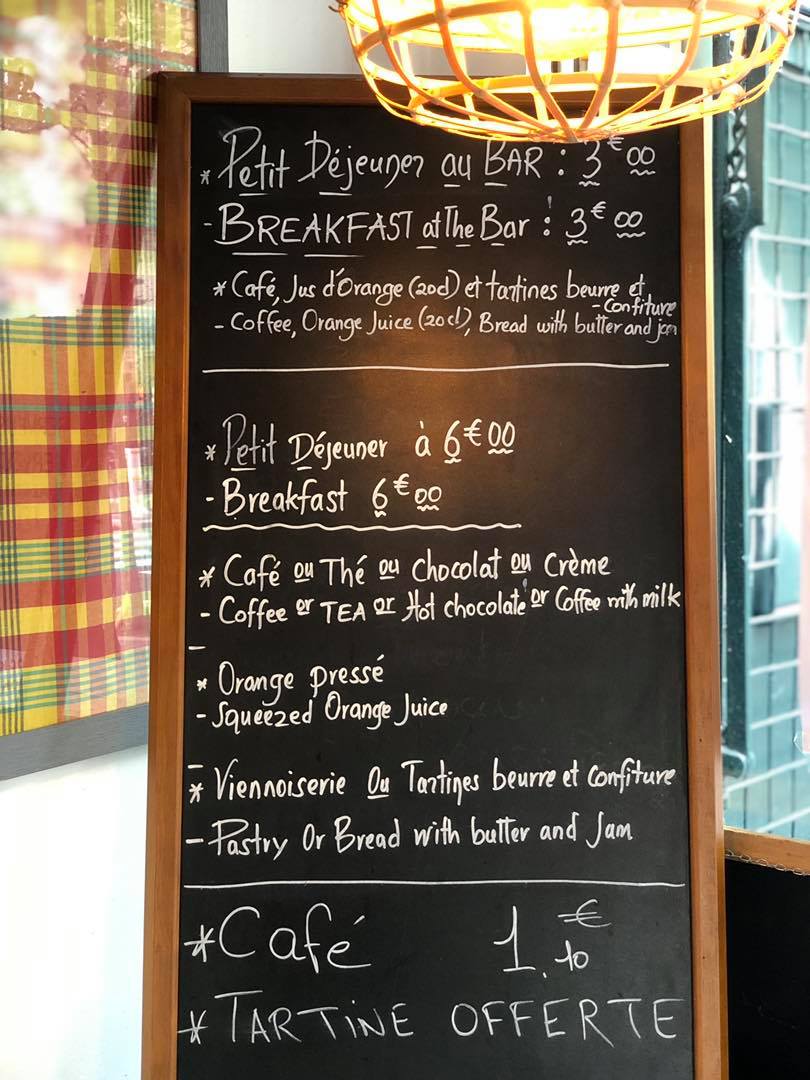 * Petit Déjeuner au BAR : 3€00
- BREAKFAST at The Bar : 3€00
* Café, Jus d'Orange (20cl) et tartines beurre et
- Confiture
- Coffee, Orange Juice (20cl), Bread with butter and jam
* Petit Déjeuner à 6€00
- Breakfast 6€00
* Café ou Thé ou chocolat ou Crème
- Coffee or TEA or Hot chocolate or Coffee with milk
* Orange pressé
- Squeezed Orange Juice
* Viennoiserie Ou Tartines beurre et confiture
- Pastry Or Bread with butter and Jam
* Café 1.€10
* TARTiNE OFFERTE